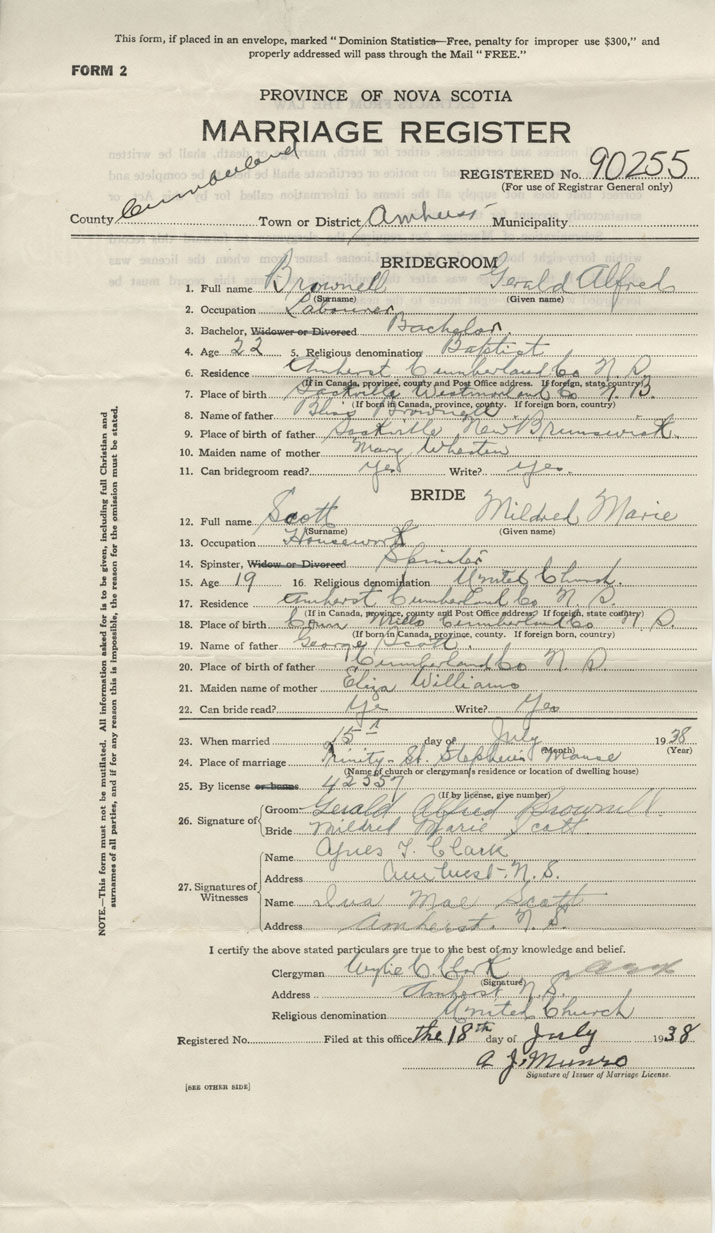 This form, if placed in an envelope, marked "Dominion Statistics—Free, penalty for improper use $300," and
properly addressed will pass through the Mail "FREE."
FORM 2
PROVINCE OF NOVA SCOTIA
MARRIAGE REGISTER
REGISTERED No. 90255
(For use of Registrar General only)
County Cumberland Town or District Amherst Municipality
BRIDEGROOM
1. Full name Brownell Gerald Alfred
(Surname) (Given name)
2. Occupation Labourer
3. Bachelor, Widower or Divorced Bachelor
4. Age 22 5. Religious denomination Baptist
6. Residence Amherst Cumberland Co N. S.
(If in Canada, province, county and Post Office address. If foreign, state country)
7. Place of birth Sackville Westmorland Co N. B.
(If born in Canada, province, county. If foreign born, country)
8. Name of father Bliss Brownell
9. Place of birth of father Sackville New Brunswick
10. Maiden name of mother Mary Wheaton
11. Can bridegroom read? Yes Write? Yes.
BRIDE
12. Full name Scott Mildred Marie
(Surname) (Given name)
13. Occupation Housework
14. Spinster, Widow or Divorced Spinster
15. Age 19 16. Religious denomination United Church.
17. Residence Amherst Cumberland Co N. S.
(If in Canada, province, county and Post Office address. If foreign, state country)
18. Place of birth Mills Cumberland Co N. S.
(If born in Canada, province, county. If foreign born, country)
19. Name of father George Scott.
20. Place of birth of father Cumberland Co N. S.
21. Maiden name of mother Eliza Williams
22. Can bride read? Yes Write? Yes
23. When married 15 day of July 1938
(Month) (Year)
24. Place of marriage Trinity-St. Stephen's Manse
(Name of church or clergyman's residence or location of dwelling house)
25. By license or banns 42357
(If by license, give number)
26. Signature of Groom Gerald Alfred Brownell
Bride Mildred Marie Scott
27. Signatures of Witnesses
Name Agnes T. Clark
Address Amherst, N. S.
Name Ina Mae Scott
Address Amherst. N. S.
I certify the above stated particulars are true to the best of my knowledge and belief.
Clergyman Wylie C. Clark
(Signature)
Address Amherst N. S.
Religious denomination United Church
Registered No. Filed at this office the 18th day of July 1938
A. J. Munro
Signature of Issuer of Marriage License.
[SEE OTHER SIDE]
NOTE.—This form must not be mutilated. All information asked for is to be given, including full Christian and
surnames of all parties, and if for any reason this is impossible, the reason for the omission must be stated.